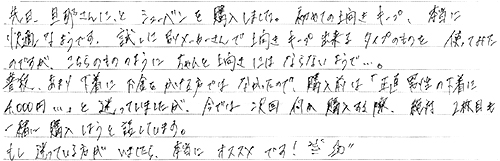 先日、旦那さんに、と シューベンを購入しました。初めての上向きキープ、本当に
快適なようです。試しに別メーカーさんで上向きキープ出来るタイプのものを使ってみた
のですが、こちらのもののように ちゃんと上向きにはならないようで…。
普段、あまり下着にお金をかける方ではなかったので、購入前は「正直男性の下着に
4,000円…」と迷っていましたが、今では次回 何か購入する際、絶対2枚目も
一緒に購入しようと話しています。
もし迷っている方がいましたら、本当にオススメです!